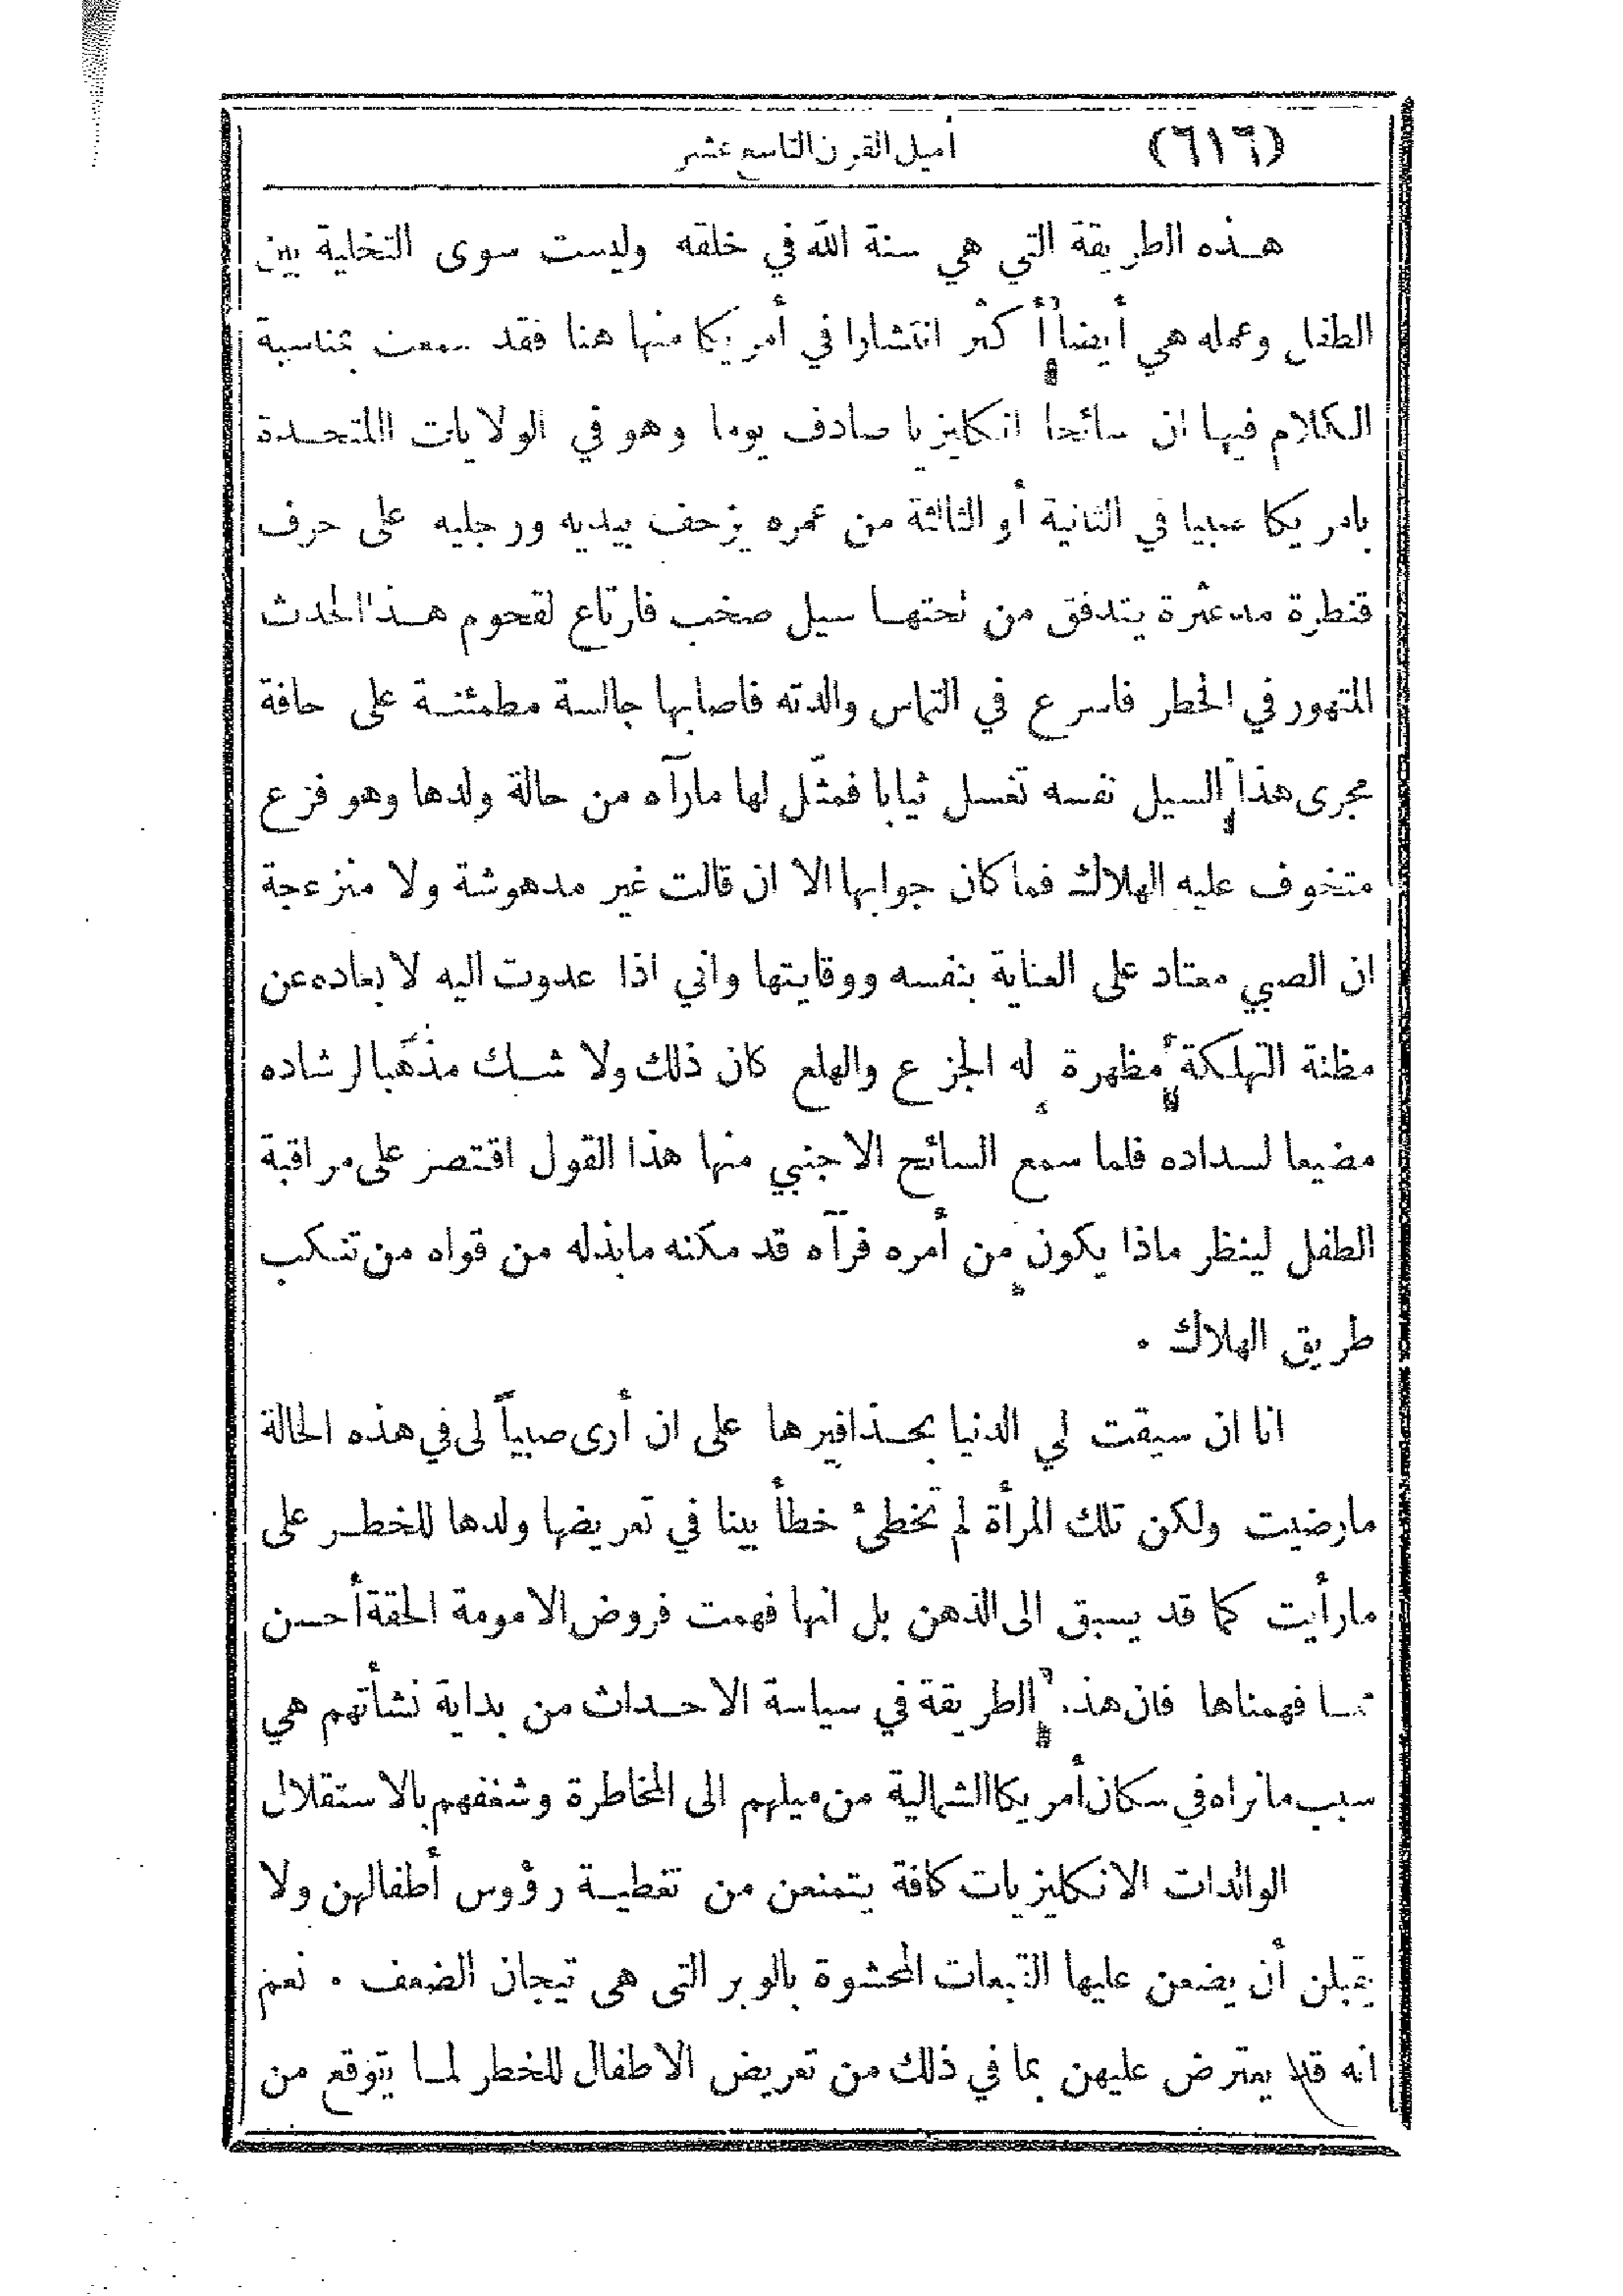 (٦١٦) أميل القرن التاسع عشر
هـذه الطريقة التي هي سنة الله في خلقه وليست سوى التخلية بين
الطفل وعمله هي أيضاً أكثر انتشارا في أمريكا منها هنا فقد سمعت بمناسبة
الكلام فيها ان سائحا انكليزيا صادف يوما وهو في الولايات المتحـدة
بامريكا صبيا في الثانية أو الثالثة من عمره يزحف بيديه ورجليه على حرف
قنطرة مدعثرة يتدفق من تحتهـا سيل صخب فارتاع لقحوم هـذا الحدث
المتهور في الخطر فاسرع في التماس والدته فاصابها جالسة مطمئنـة على حافة
مجرى هذا السيل نفسه تغسل ثيابا فمثّل لها مارآه من حالة ولدها وهو فزع
متخوف عليه الهلاك فما كان جوابها الا ان قالت غير مدهوشة ولا منزعجة
ان الصبي معتاد على العناية بنفسه ووقايتها واني اذا عدوت اليه لابعاده عن
مظنة التهلكة مظهرة له الجزع والهلع كان ذلك ولا شـك مذهبا لرشاده
مضيعا لسداده فلما سمع السائح الاجنبي منها هذا القول اقتصر على مراقبة
الطفل لينظر ماذا يكون من أمره فرآه قد مكنه مابذله من قواه من تنكب
طريق الهلاك .
انا ان سيقت لي الدنيا بحـذافيرها على ان أرى صبياً لى في هذه الحالة
مارضيت ولكن تلك المرأة لم تخطئ خطأ بينا في تعريضها ولدها للخطـر على
مارأيت كما قد يسبق الى الذهن بل انها فهمت فروض الامومة الحقة أحسن
ممـا فهمناها فان هذه الطريقة في سياسة الاحـداث من بداية نشأتهم هي
سبب مانراه في سكان أمريكا الشمالية من ميلهم الى المخاطرة وشغفهم بالاستقلال
الوالدات الانكليزيات كافة يتمنعن من تغطيـة رؤوس أطفالهن ولا
يقبلن أن يضعن عليها القبعات المحشوة بالوبر التى هى تيجان الضعف . نعم
انه قد يعترض عليهن بما في ذلك من تعريض الاطفال للخطر لمـا يتوقع من